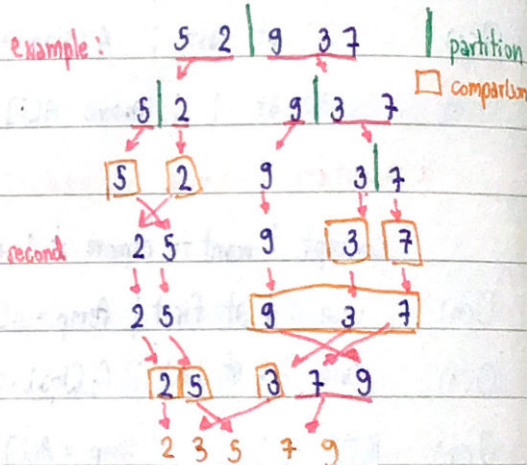 example: 5 2 | 9 3 7 | partition
comparison
5 | 2 9 | 3 7
5 2 9 3 | 7
second 2 5 9 3 7
2 5 9 3 7
2 5 3 7 9
2 3 5 7 9